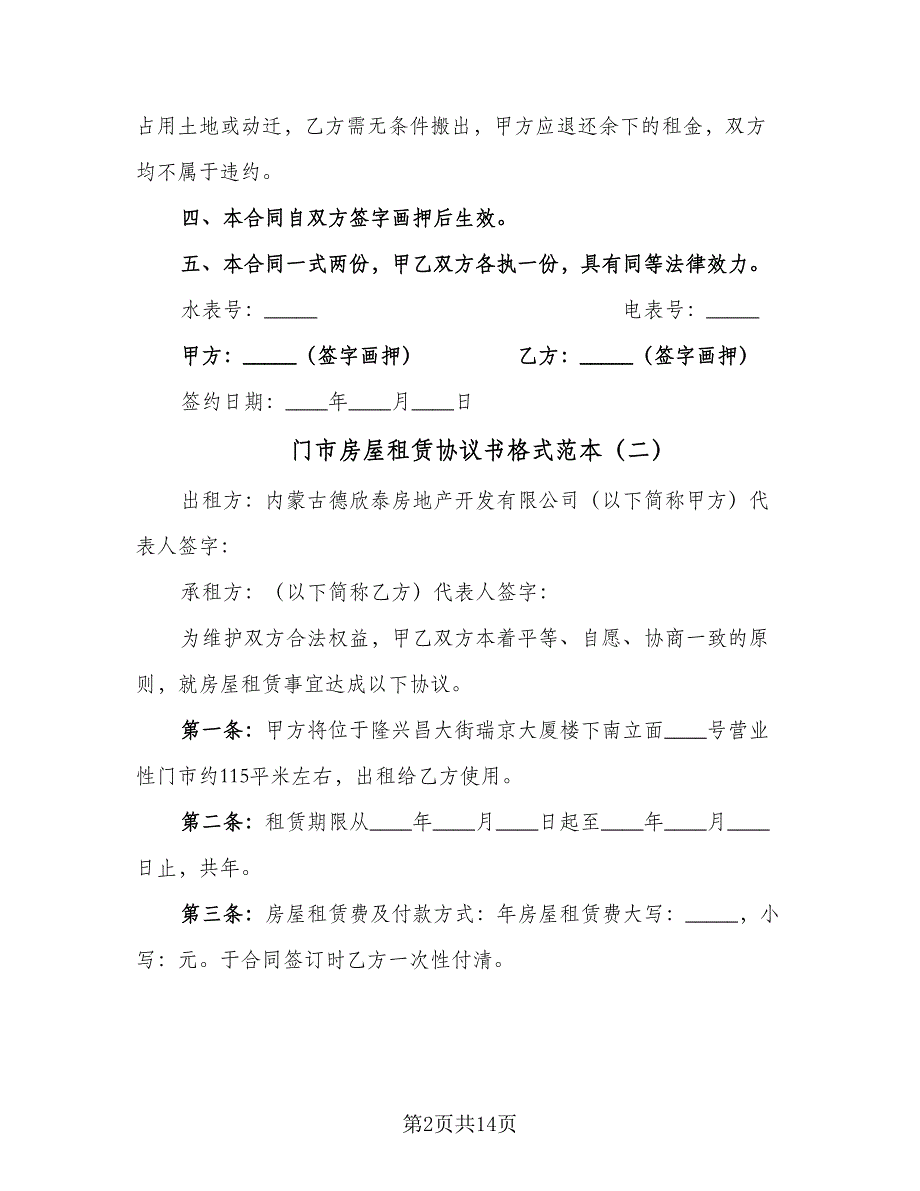 占用土地或动迁，乙方需无条件搬出，甲方应退还余下的租金，双方
均不属于违约。
四、本合同自双方签字画押后生效。
五、本合同一式两份，甲乙双方各执一份，具有同等法律效力。
水表号：_____ 电表号：_____
甲方：_____（签字画押） 乙方：_____（签字画押）
签约日期：____年____月____日
门市房屋租赁协议书格式范本（二）
出租方：内蒙古德欣泰房地产开发有限公司（以下简称甲方）代
表人签字：
承租方：（以下简称乙方）代表人签字：
为维护双方合法权益，甲乙双方本着平等、自愿、协商一致的原
则，就房屋租赁事宜达成以下协议。
第一条：甲方将位于隆兴昌大街瑞京大厦楼下南立面____号营业
性门市约115平米左右，出租给乙方使用。
第二条：租赁期限从____年____月____日起至____年____月____
日止，共年。
第三条：房屋租赁费及付款方式：年房屋租赁费大写：_____，小
写：元。于合同签订时乙方一次性付清。
第2页共14页